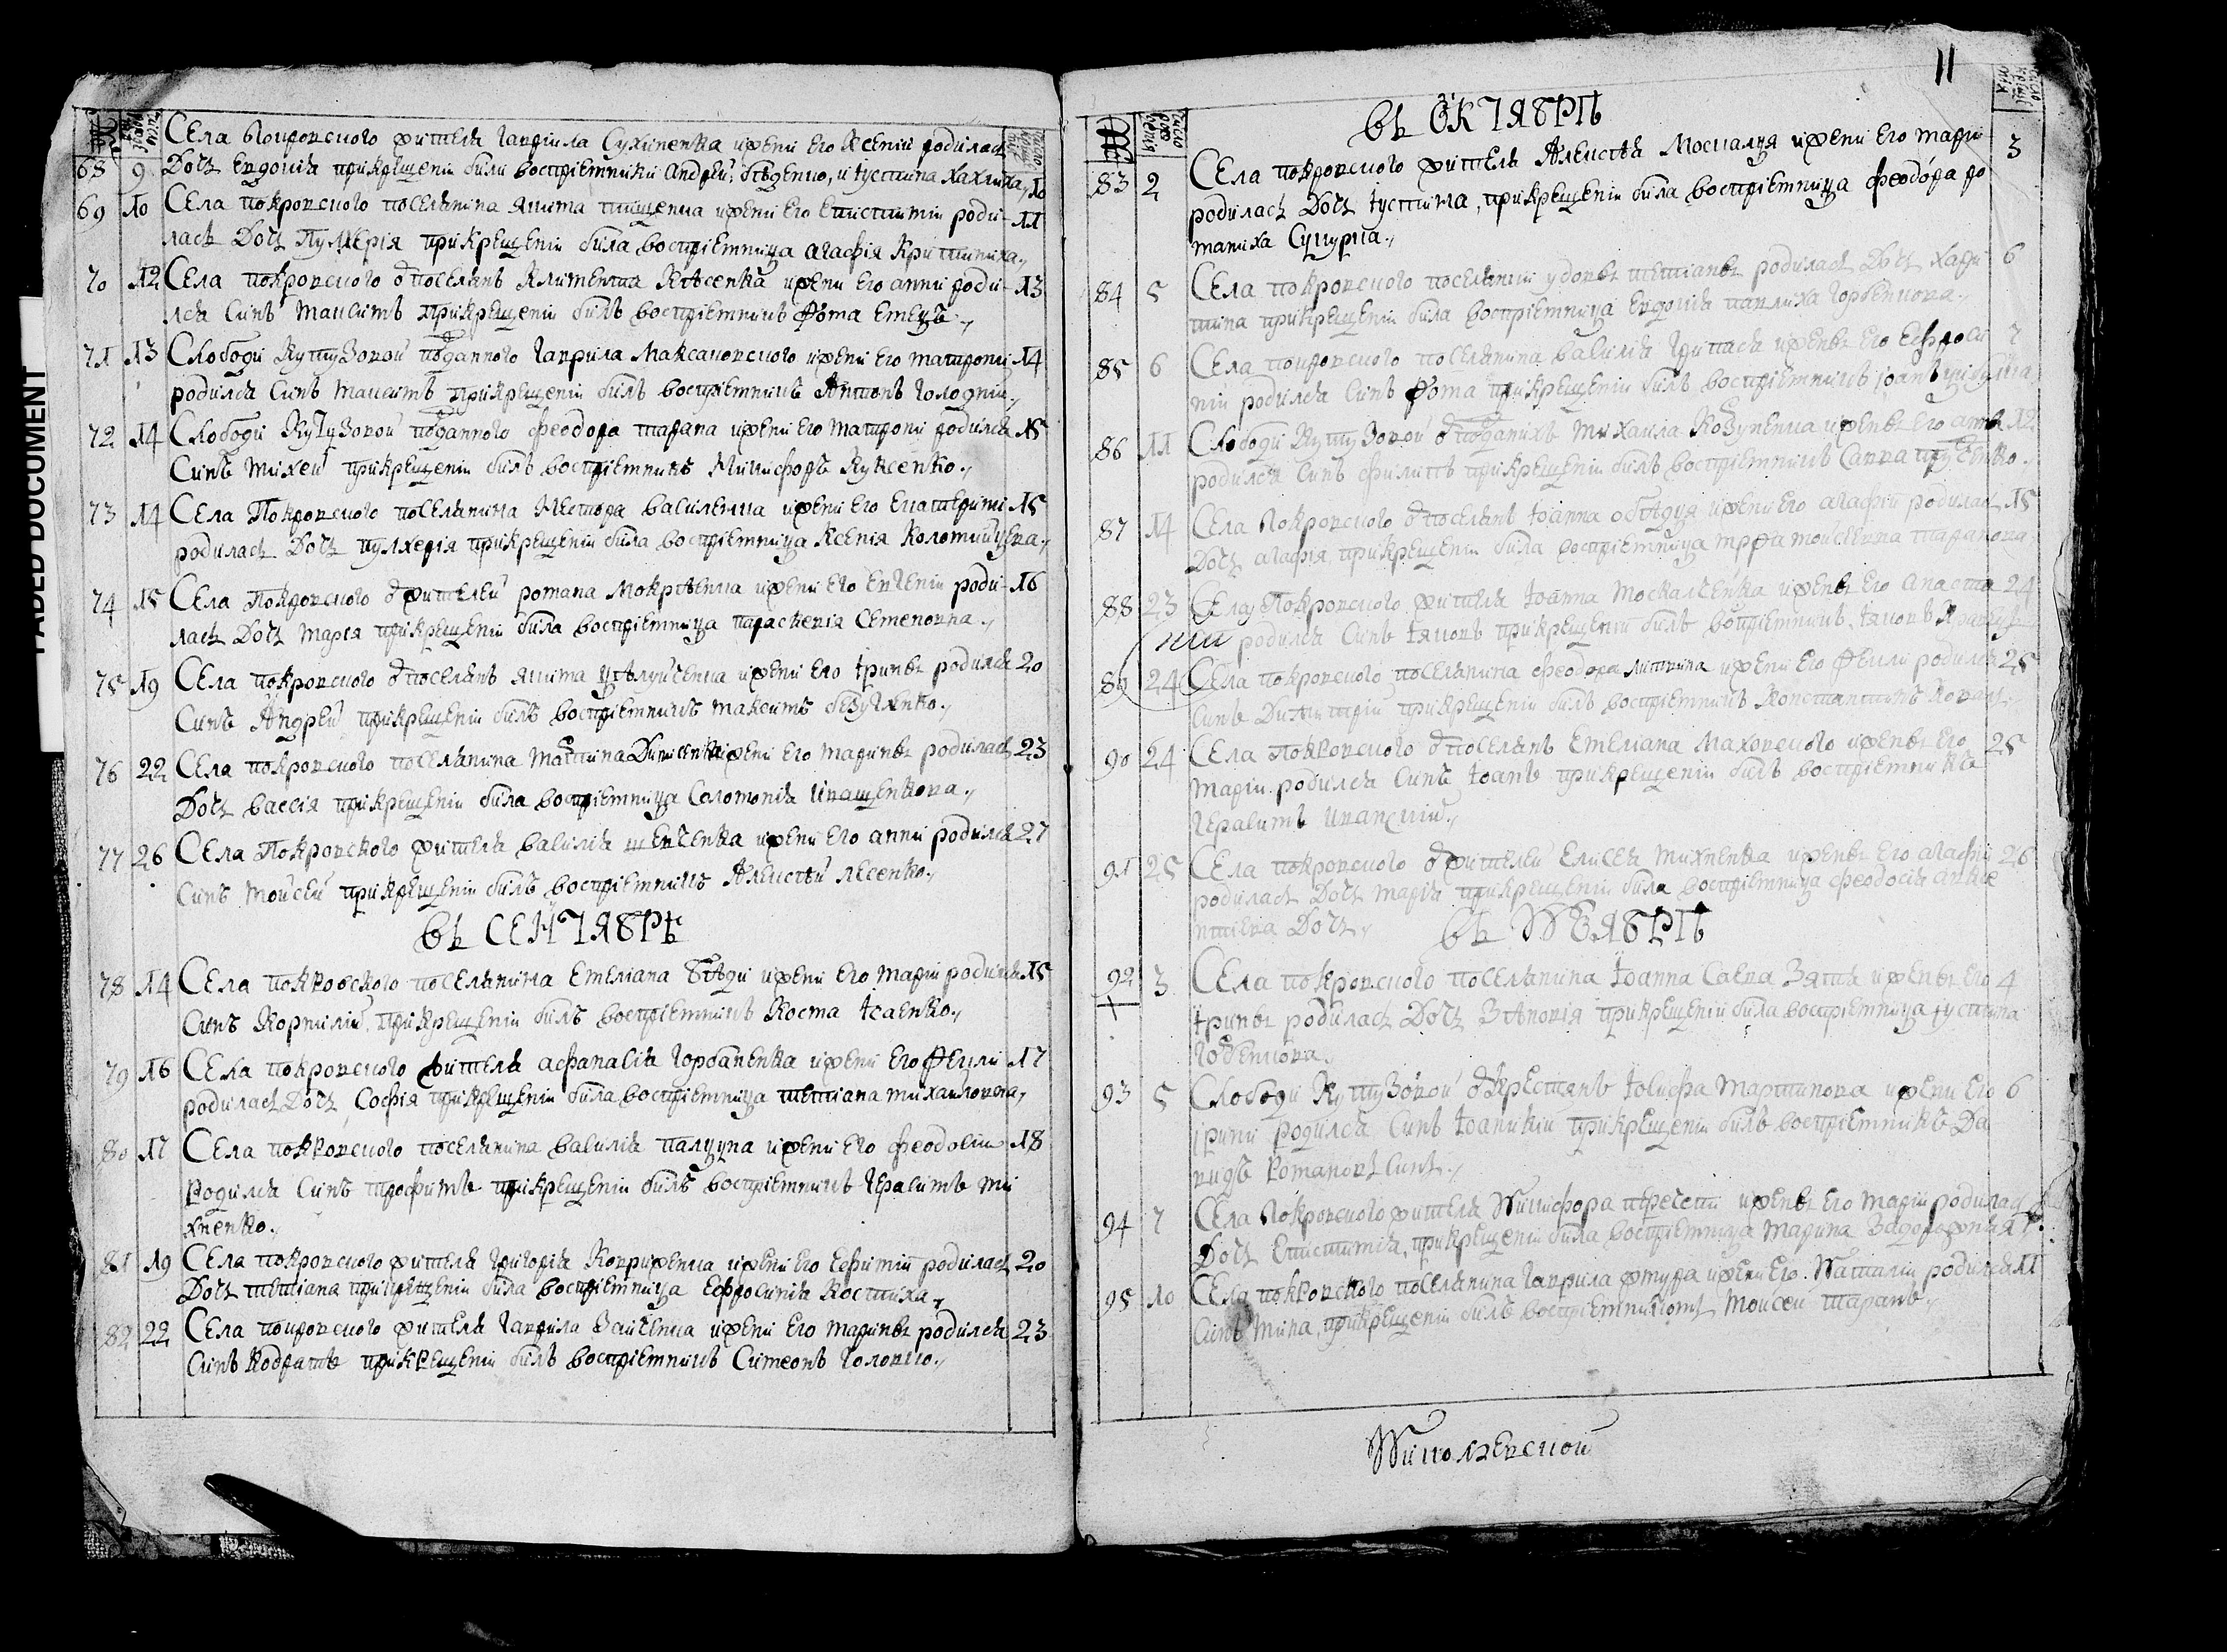 FADED DOCUMENT
Села Покровского жителя Гаврила Сухиненка и жени его Ксении родилась
68 9 Дочь Евдокия при крещении били восприемники Андрей Бѣденко, и Иустина Хахлиха 10
69 10 Села покровского поселянина Якима тищенка и жени его Епистимии роди- 11
лась Дочь Пулхерия при крещении била восприемница агафия
70 12 Села покровского от поселянъ Климента и жени его анни роди- 13
лся Синъ Максимъ при крещении билъ восприемникъ Фома Емецъ
71 13 Слободи Кутузовой подданного Гаврила Максаковского и жени его Матрони 14
родился Синъ Максимъ при крещении билъ восприемникъ Антонъ Голодний
72 14 Слободи Кутузовой подданного феодора тарана и жени его Матрони родился 15
Синъ Михей при крещении билъ восприемникъ Никифоръ Куксенко
73 14 Села Покровского поселянина Нестора василенка и жени его Екатерини 15
родилась Дочь пулхерия при крещении била восприемница Ксения Коломийцева
74 15 Села Покровского от жителей романа Мокрѣенка и жени его Евгении роди- 16
лась Дочь Мария при крещении била восприемница параскевия Семеновна
75 19 Села покровского от поселянъ Якима и жени его Іринѣ родился 20
Синъ Андрей при крещении билъ восприемникъ Максимъ
76 22 Села покровского поселянина Мартина и жени его Маринѣ родилась 23
Дочь вассия при крещении била восприемница Соломония Иващенкова
77 26 Села Покровского жителя василия шевченка и жени его анни родился 27
Синъ Мойсей при крещении билъ восприемникъ Алексѣй лесенко
въ СЕНТЯБРѢ
78 14 Села покровского поселянина Емелиана Бѣди и жени его Марии родился 15
Синъ Корнилий при крещении билъ восприемникъ Косма Ісаенко
79 16 Села покровского жителя афанасия Горбаненка и жени его Фекли 17
родилась Дочь София при крещении била восприемница тетиана Михаиловна
80 17 Села покровского поселянина василия палцуна и жени его феодосии 18
Родился Синъ трофимъ при крещении билъ восприемникъ Герасимъ Ми
хненко
81 19 Села покровского жителя Григория Ковриженка и жени его Ефимии родилась 20
Дочь тетиана при крещении била восприемница Ефросиния Костиха
82 22 Села покровского жителя Гаврила Заиченка и жени его Маринѣ родился 23
Синъ Кодратъ при крещении билъ восприемникъ Симеонъ Головко
11
въ ОКТЯБРѢ
83 2 Села покровского жителя Алексѣя Москалця и жени его Марии 3
родилась Дочь Іустина, при крещении била восприемница феодора до
маниха Сукурна
84 5 Села покровского поселянки удовѣ тетианѣ родилась Дочь хари 6
тина при крещении била восприемница Евдокия павлиха Горбенкова
85 6 Села покровского поселянина василия и женѣ его Ефроси 7
нии родился Синъ Фома при крещении билъ восприемникъ Іоанъ
86 11 Слободи Кутузовой от поданихъ Михаила Козуненка и женѣ его 12
родился Синъ филипъ при крещении билъ восприемникъ Савва
87 14 Села Покровского от поселянъ Іоанна обѣдця и жени его агафии родилась 15
Дочь агафия при крещении била восприемница Марфа таранова
88 23 Села Покровского жителя Іоанна Москалченка и женѣ его анаста 24
сии родился Синъ Іяковъ при крещении билъ восприемникъ Іяковъ
89 24 Села покровского поселянина феодора литвина и жени его Фекли родился 25
Синъ Димитрий при крещении билъ восприемникъ Константинъ
90 24 Села покровского от поселянъ Емелиана Маховского и женѣ его 25
Марии родился Синъ Іоанъ при крещении билъ восприемникъ
Герасимъ Иванский
91 25 Села покровского от жителей Елисея Михненка и женѣ его агафии 26
родилась Дочь Мария при крещении била восприемница феодосия
Дочь
въ НОЯБРѢ
92 3 Села покровского поселянина Іоанна Саева Зятя и женѣ его 4
Іринѣ родилась Дочь Зѣновия при крещении била восприемница Іустина
93 5 Слободи Кутузовой от крестянъ Іосифа Мартинова и жени его 6
Ірини родился Синъ Іоаникий при крещении билъ восприемникъ Да
видъ Романовъ Синъ
94 7 Села Покровского жителя Никифора и женѣ его Марии родилась
Дочь Епистимия, при крещении била восприемница Марина
95 10 Села покровского поселянина Гаврила и жени его Наталии родился 11
Синъ Мина, при крещении билъ восприемникомъ Мойсей таранъ